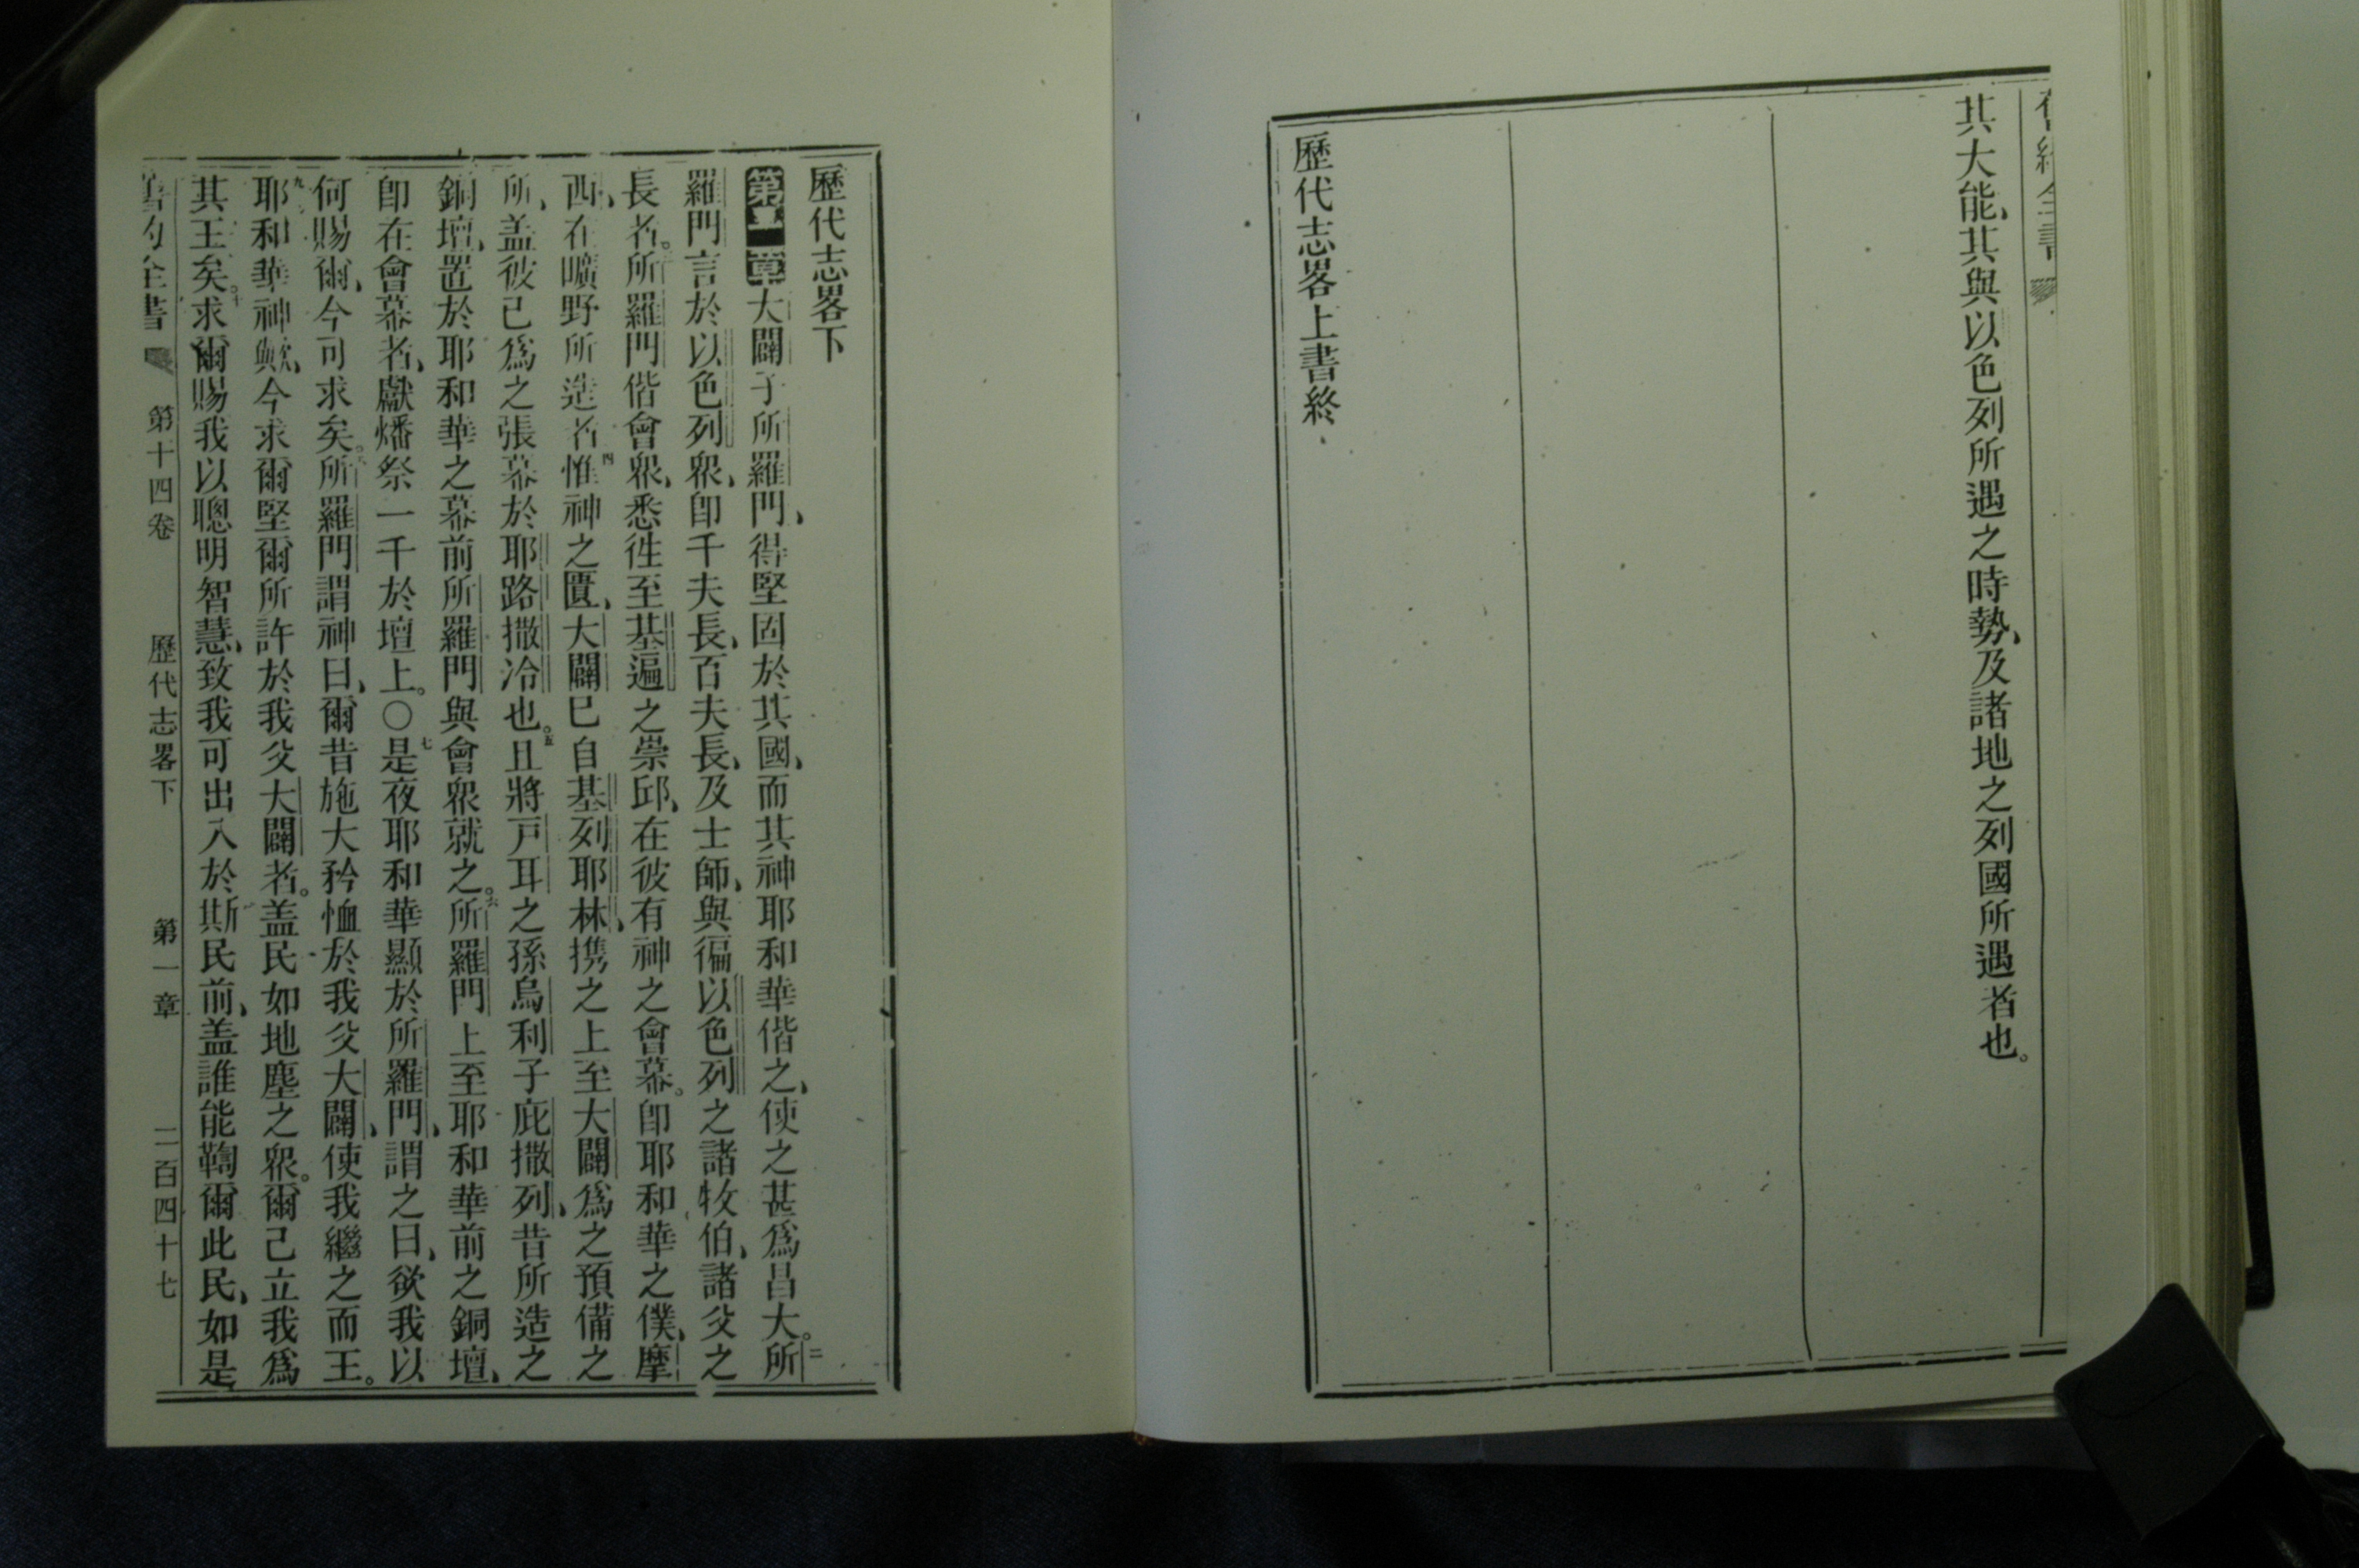 其大能、其與以色列所遇之時勢、及諸地之列國所遇者也。
歷代志畧上書終
歷代志畧下
第一章大闢子所羅門、得堅固於其國、而其神耶和華偕之、使之甚爲昌大。二所
羅門言於以色列衆、卽千夫長、百夫長、及士師、與徧以色列之諸牧伯、諸父之
長者。所羅門偕會衆、悉徃至基遍之崇邱、在彼有神之會幕。卽耶和華之僕、摩
西、在曠野所造者四惟神之匱、大闢已自基列耶林、携之上至大闢爲之預備之
所、盖彼已爲之張幕於耶路撒冷也。五且將戸耳之孫烏利子庇撒列、昔所造之
銅壇、置於耶和華之幕前所羅門與會衆就之。六所羅門上至耶和華前之銅壇、
卽在會幕者、獻燔祭一千於壇上。〇七是夜耶和華顯於所羅門、謂之曰、欲我以
何賜爾、今可求矣。所羅門謂神曰、爾昔施大矜恤於我父大闢、使我繼之而王。
九耶和華神歟、今求爾堅爾所許於我父大闢者。盖民如地塵之衆。爾己立我爲
其王矣。十求爾賜我以聰明智慧、致我可出入於斯民前、盖誰能鞫爾此民、如是
全書 第十四卷 歷代志畧下 第一章 二百四十七